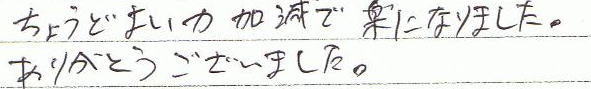 ちょうどよい力加減で楽になりました。
ありがとうございました。